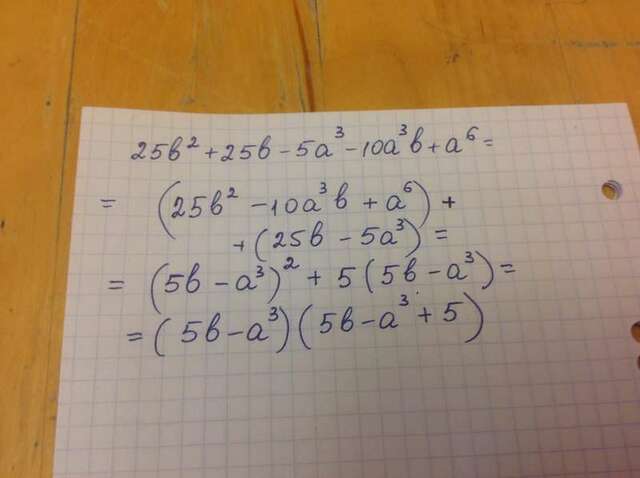 25b² + 25b - 5a³ - 10a³b + a⁶ =
= (25b² - 10a³b + a⁶) +
+ (25b - 5a³) =
= (5b - a³)² + 5(5b - a³) =
= (5b - a³)(5b - a³ + 5)